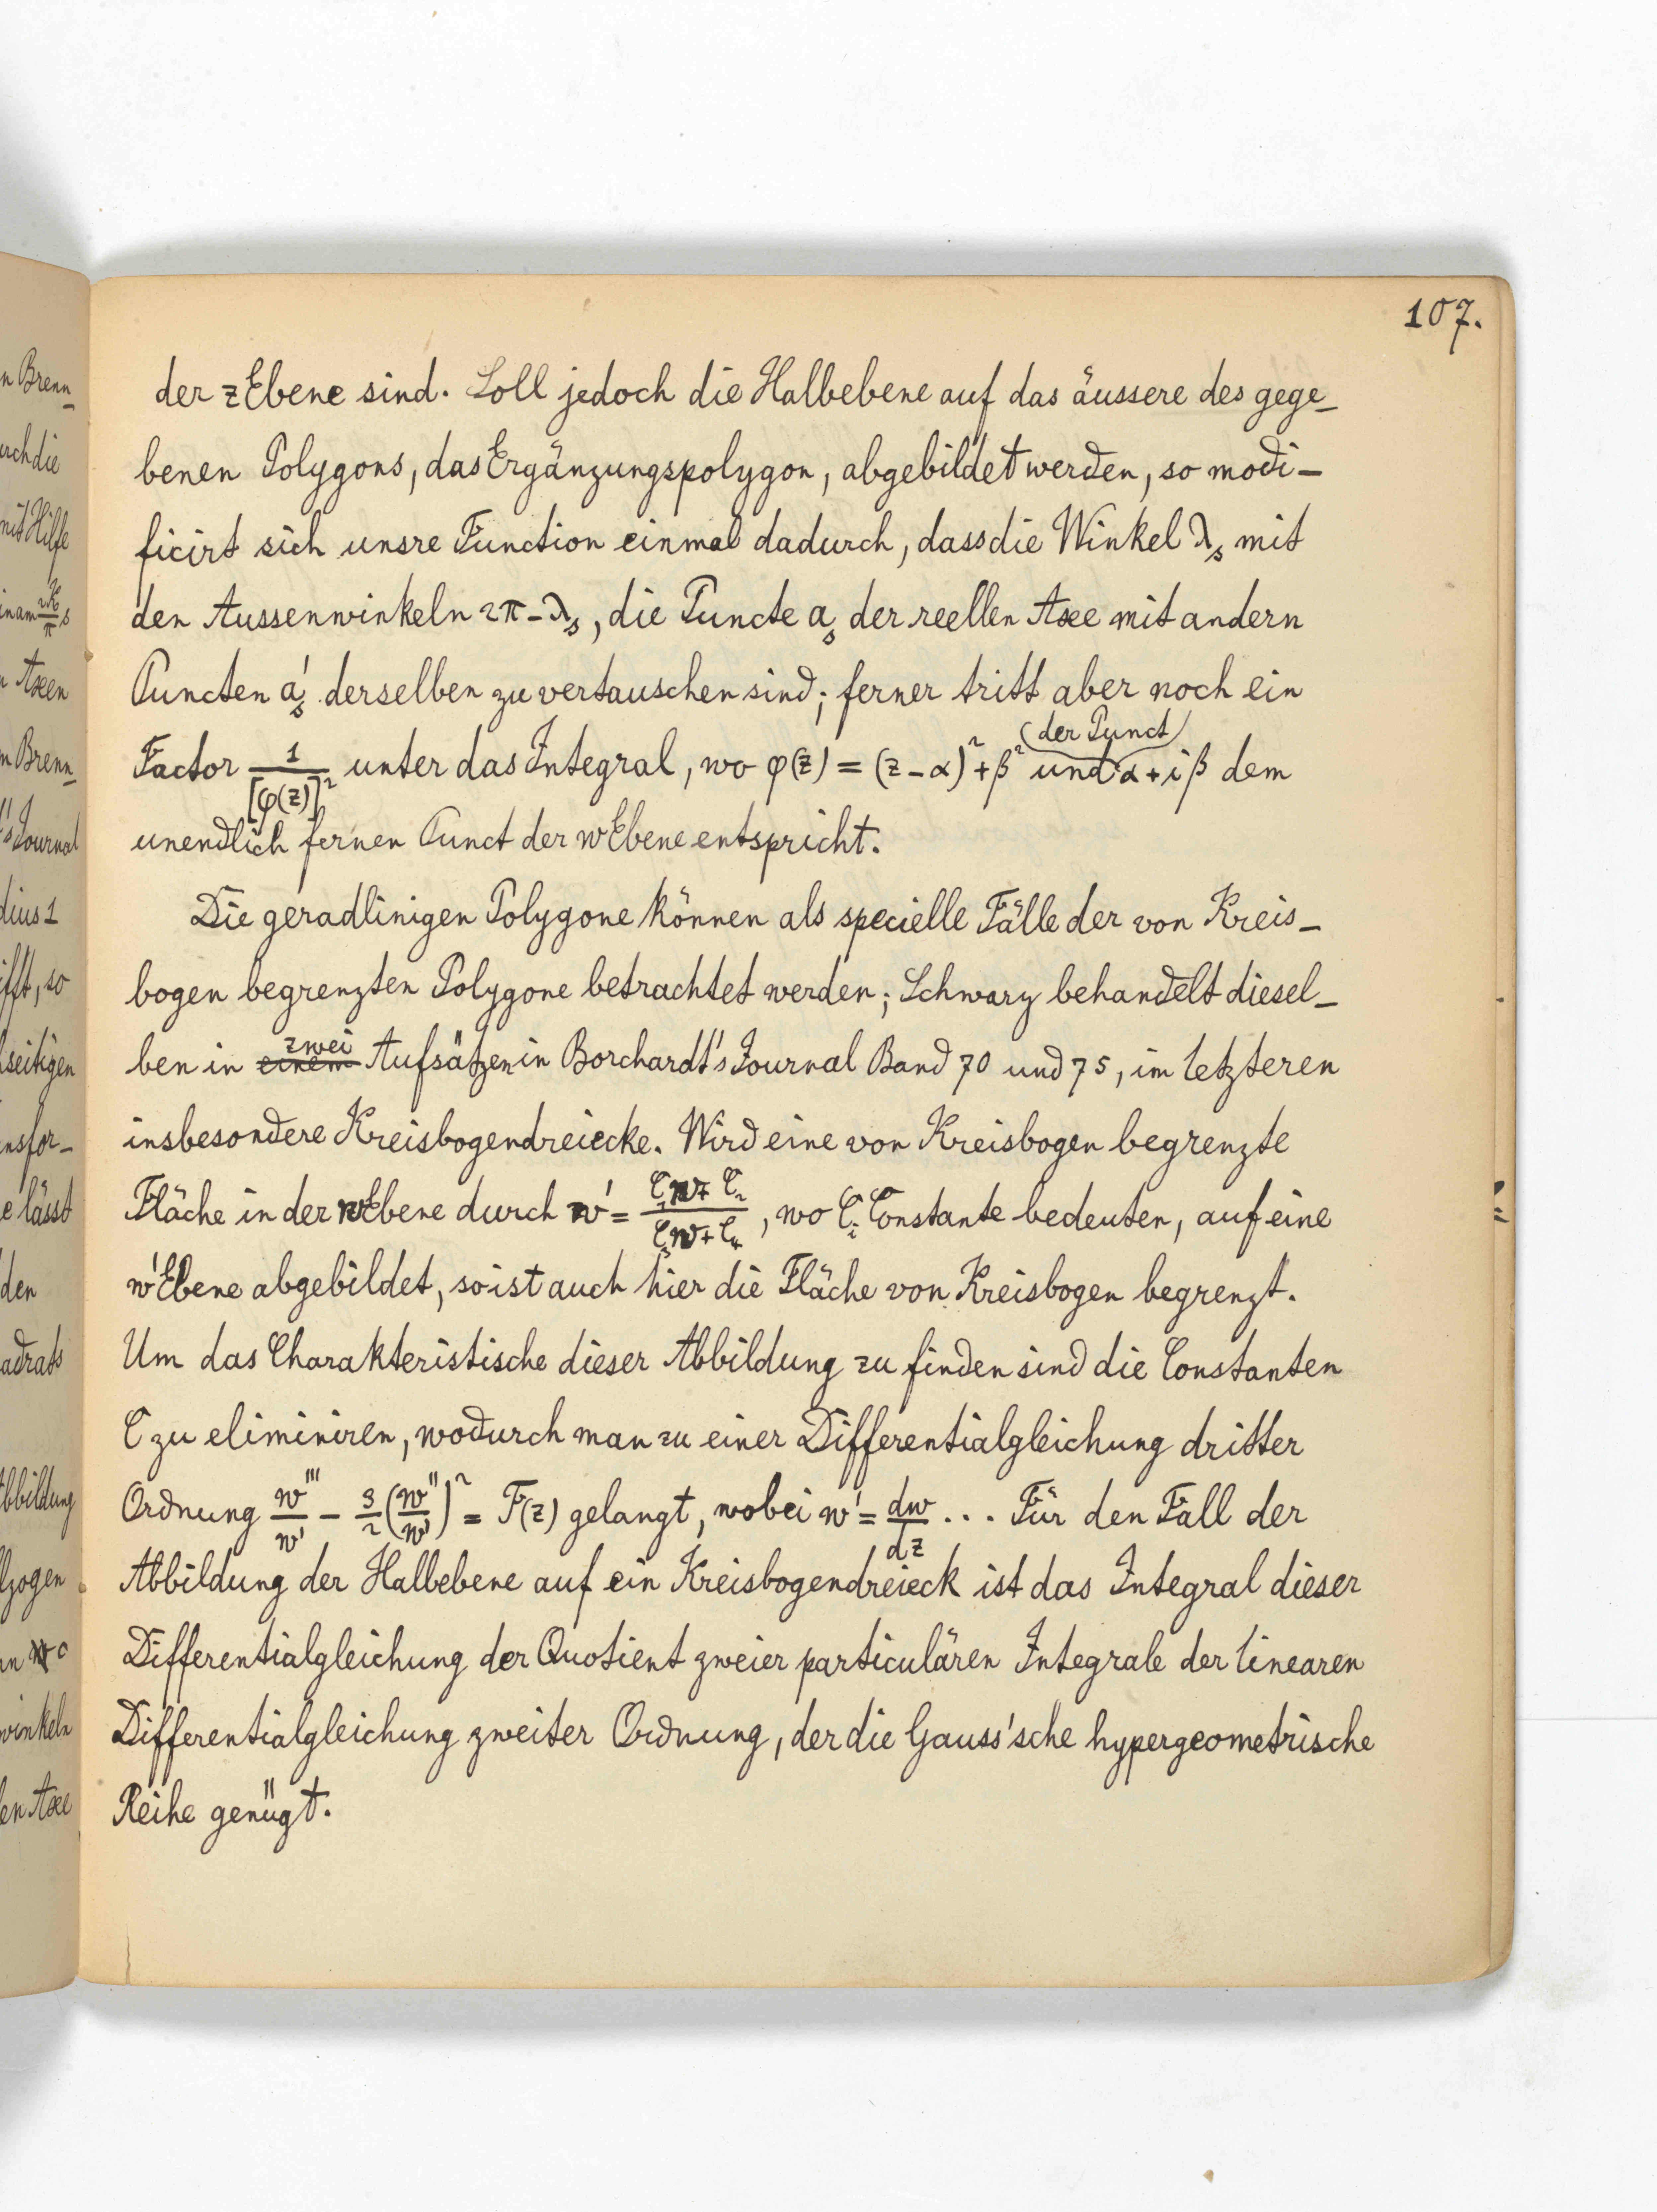 107.
der zEbene sind. Soll jedoch die Halbebene auf das äussere des gege-
benen Polygons, das Ergänzungspolygon, abgebildet werden, so modi-
ficirt sich unsre Function einmal dadurch, dass die Winkel λₛ mit
den Aussenwinkeln 2π-λₛ, die Puncte aₛ der reellen Axe mit andern
Puncten a'ₛ derselben zu vertauschen sind; ferner tritt aber noch ein
Factor 1/[φ(z)]² unter das Integral, wo φ(z) = (z-α)²+β² und (der Punct) α+iβ dem
unendlich fernen Punct der wEbene entspricht.
Die geradlinigen Polygone können als specielle Fälle der von Kreis-
bogen begrenzten Polygone betrachtet werden; Schwarz behandelt diesel-
ben in einem zwei Aufsätzen in Borchardt's Journal Band 70 und 75, im letzteren
insbesondere Kreisbogendreiecke. Wird eine von Kreisbogen begrenzte
Fläche in der wEbene durch w' = (C₁w+C₂)/(C₃w+C₄), wo Cᵢ Constante bedeuten, auf eine
w'Ebene abgebildet, so ist auch hier die Fläche von Kreisbogen begrenzt.
Um das Charakteristische dieser Abbildung zu finden sind die Constanten
C zu eliminiren, wodurch man zu einer Differentialgleichung dritter
Ordnung w'''/w' - 3/2 (w''/w')² = F(z) gelangt, wobei w' = dw/dz ... Für den Fall der
Abbildung der Halbebene auf ein Kreisbogendreieck ist das Integral dieser
Differentialgleichung der Quotient zweier particulären Integrale der linearen
Differentialgleichung zweiter Ordnung, der die Gauss'sche hypergeometrische
Reihe genügt.